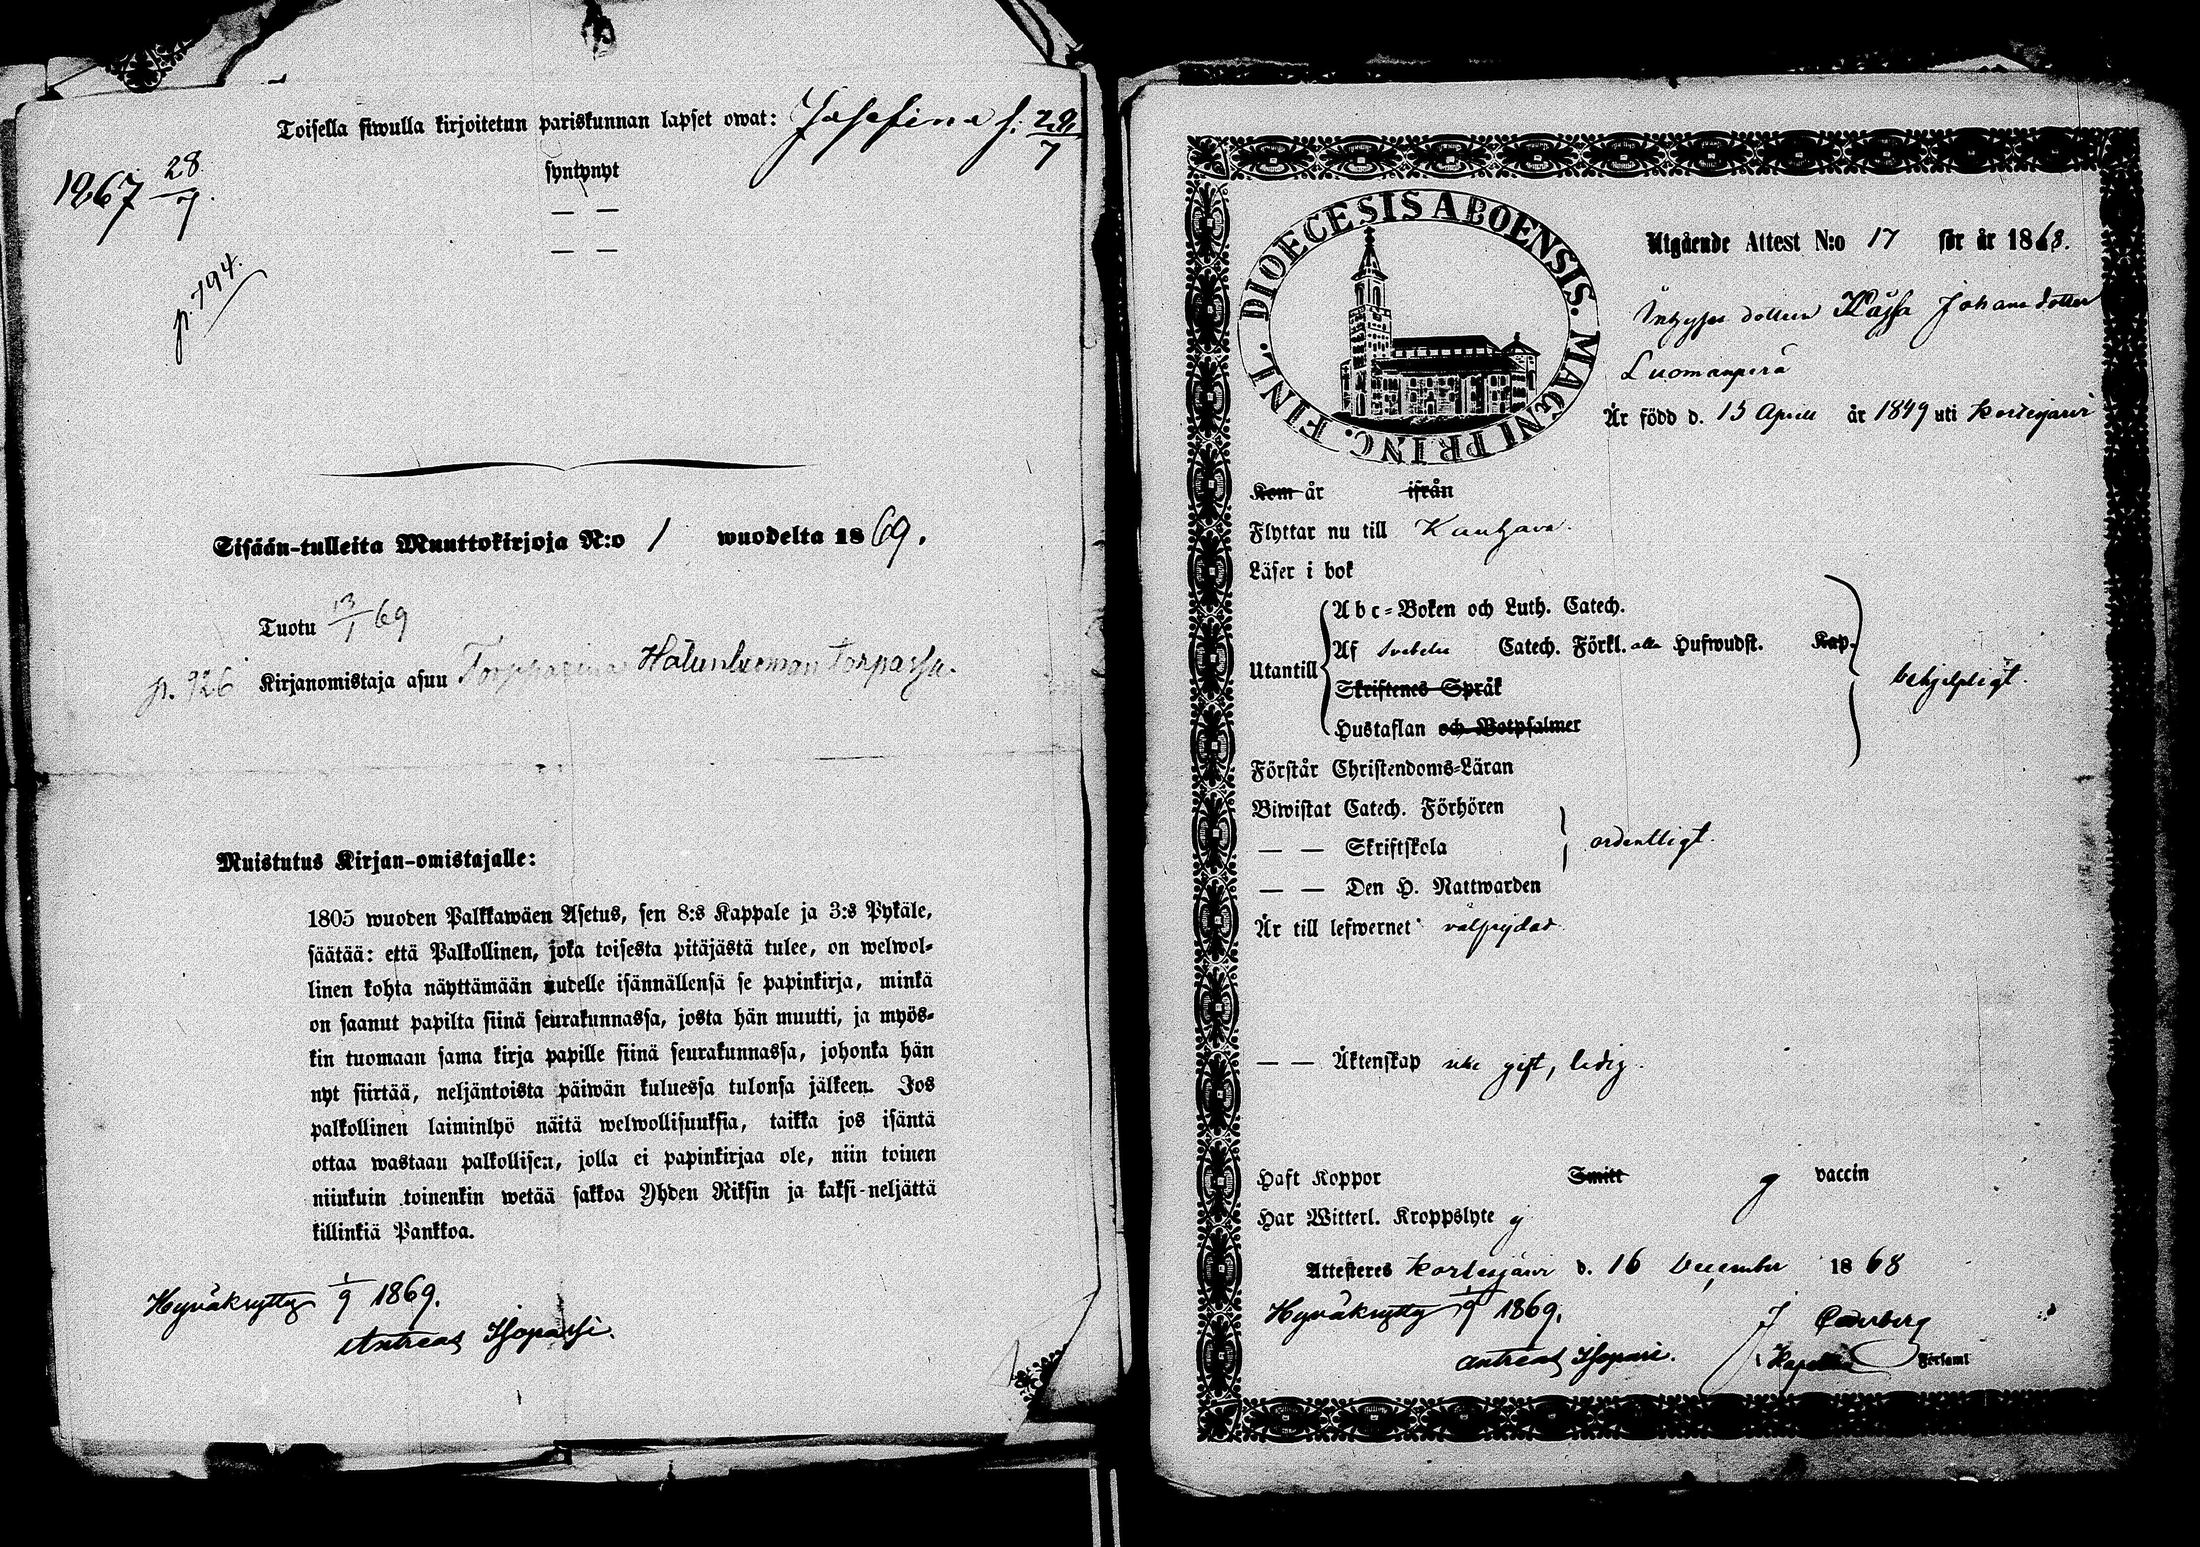 Toisella siwulla kirjoitetun pariskunnan lapset owat: Josefina f. 29/7
1867 28/7.
syntynyt
— —
— —
p. 794.
Sisään-tulleita Muuttokirjoja N:o 1 wuodelta 1869.
Tuotu 13/1 69
p. 926 Kirjanomistaja asuu Torpparina Halunluoman torpassa.
Muistutus Kirjan-omistajalle:
1805 wuoden Palkkawäen Asetus, sen 8:s Kappale ja 3:s Pykäle,
säätää: että Palkollinen, joka toisesta pitäjästä tulee, on welwol-
linen kohta näyttämään uudelle isännällensä se papinkirja, minkä
on saanut papilta siinä seurakunnassa, josta hän muutti, ja myös-
kin tuomaan sama kirja papille siinä seurakunnassa, johonka hän
nyt siirtää, neljäntoista päiwän kuluessa tulonsa jälkeen. Jos
palkollinen laiminlyö näitä welwollisuuksia, taikka jos isäntä
ottaa wastaan palkollisen, jolla ei papinkirjaa ole, niin toinen
niinkuin toinenkin wetää sakkoa Yhden Riksin ja kaksi-neljättä
killinkiä Pankkoa.
Hyväksytty 1/9 1869.
Antreas Isopassi.
DIOECESIS ABOENSIS. MAGNI PRINC. FINL.
Utgående Attest N:o 17 för år 1868.
Inhyses dottern Kajsa Johansdotter
Luomanperä
Är född d. 15 April år 1849 uti Kortesjärvi
Kom år ifrån
Flyttar nu till Kauhava.
Läser i bok
Utantill
Abc-Boken och Luth. Catech.
Af Svebelii Catech. Förkl. alla Hufwudst. Kap.
Skriftenes Språk
Hustaflan och Botpsalmer
behjelpligt.
Förstår Christendoms-Läran
Biwistat Catech. Förhören
— — Skriftskola
ordentligt.
— — Den H. Nattwarden
Är till lefwernet välfrejdad
— — Äktenskap icke gift, ledig.
Haft Koppor Smitt g vaccin
Har Witterl. Kroppslyte ej
Attesteres Kortesjärvi d. 16 December 1868
Hyväksytty 1/9 1869.
Antreas Isopassi.
Församl